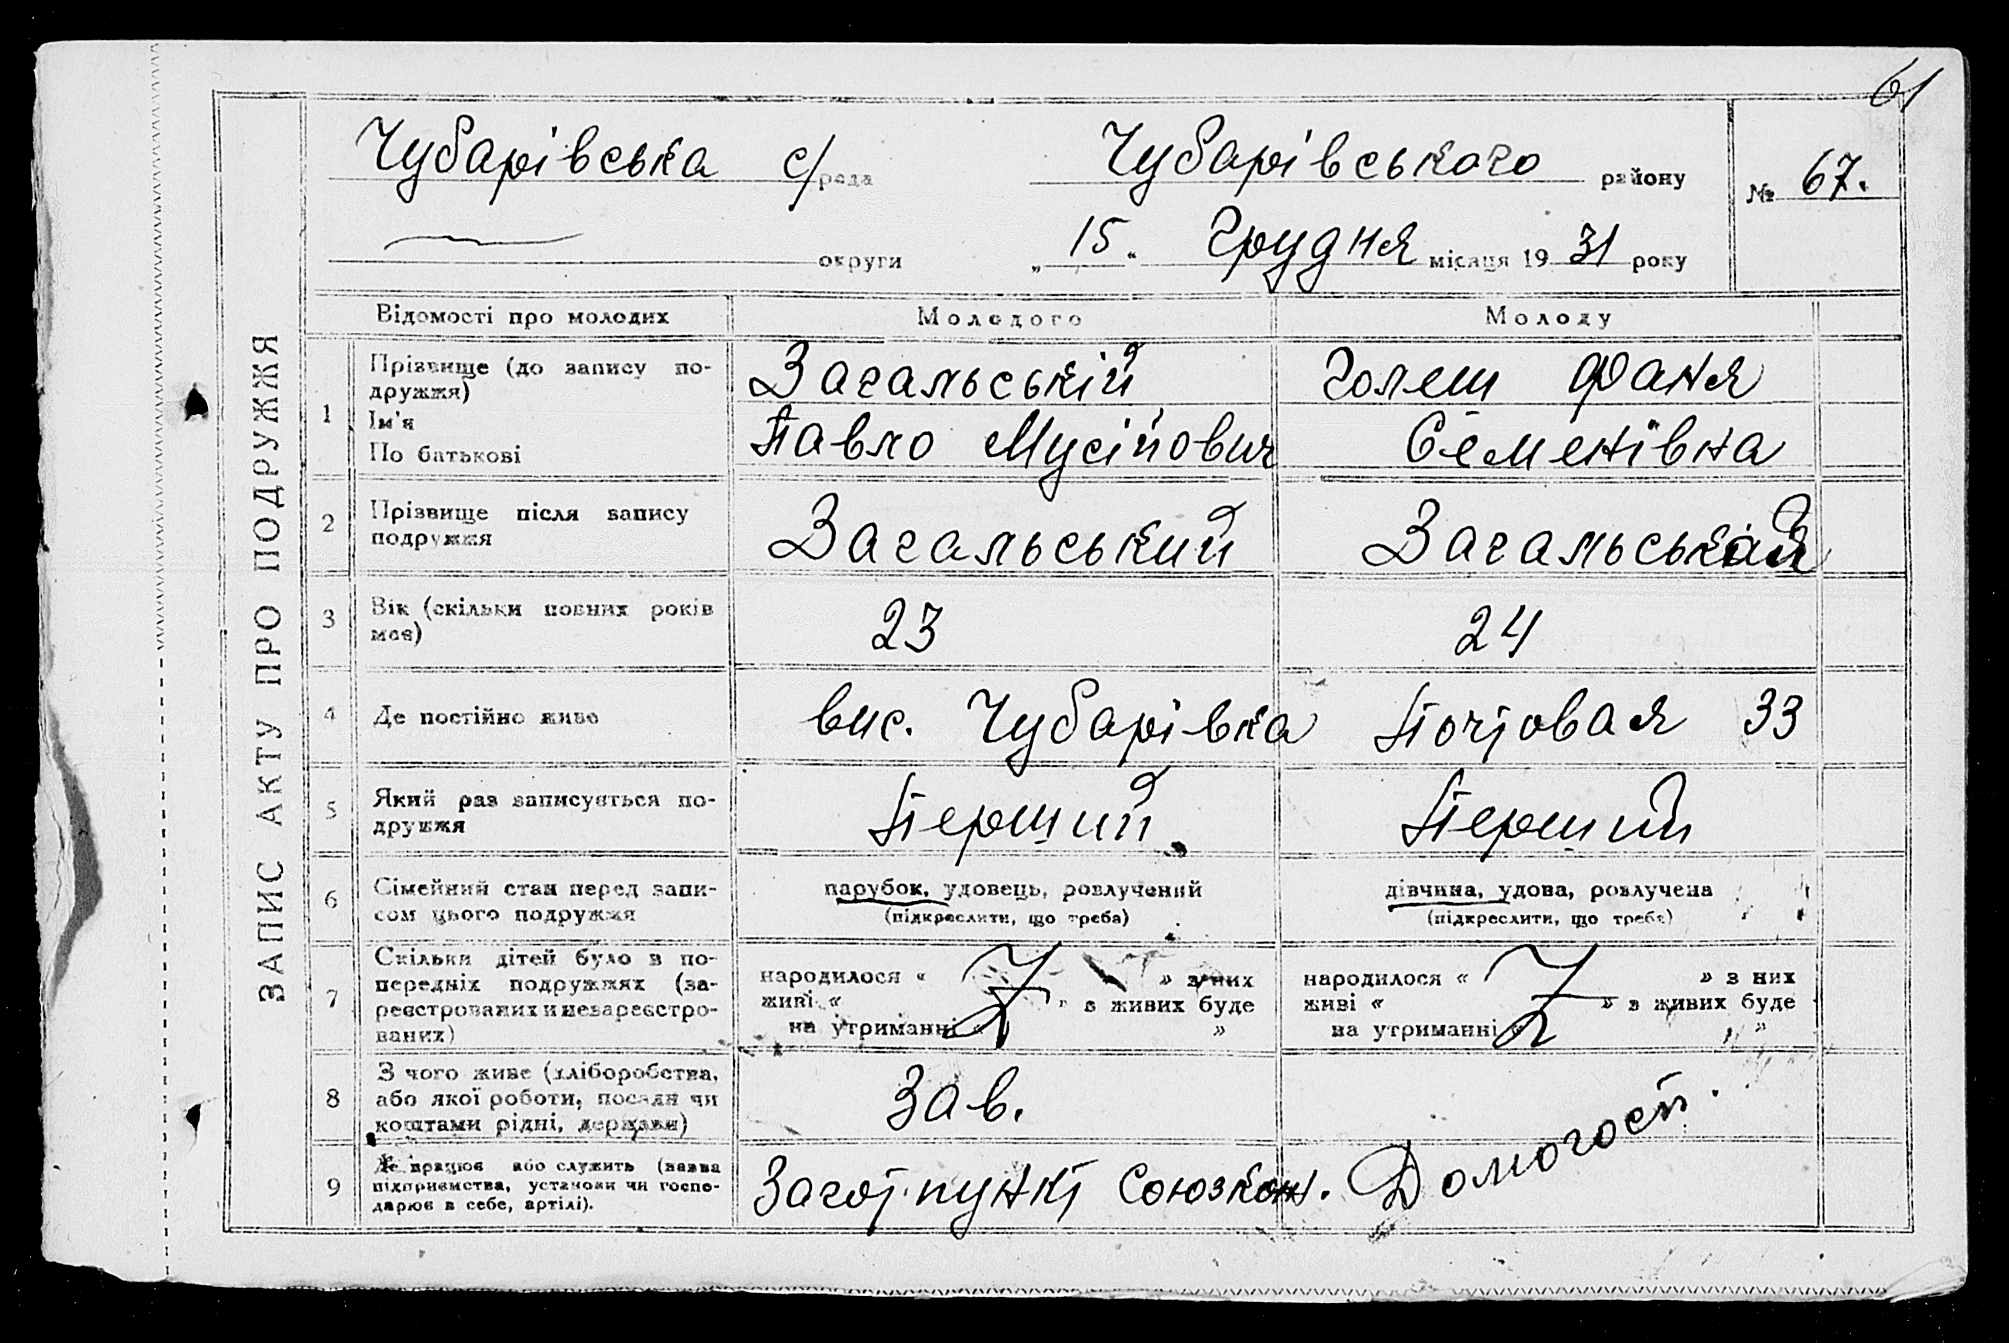 61
Чубарівська с/рада Чубарівського району № 67.
округи „15“ Грудня місяця 1931 року
ЗАПИС АКТУ ПРО ПОДРУЖЖЯ
Відомості про молодих Молодого Молоду
1 Прізвище (до запису по-
дружжя)
Ім'я
По батькові
Загальській
Павло Мусійович
Голеш Фаня
Семенівна
2 Прізвище після запису
подружжя
Загальський
Загальська
3 Вік (скільки повних років
має)
23
24
4 Де постійно живе
вис. Чубарівка
Почтовая 33
5 Який раз записується по-
дружжя
Перший
Перший
6 Сімейний стан перед запи-
сом цього подружжя
парубок, удовець, розлучений
(підкреслити, що треба)
дівчина, удова, розлучена
(підкреслити, що треба)
7 Скільки дітей було в по-
передніх подружжях (за-
реєстрованих и незареєстро-
ваних)
народилося « » з них
живі « » з живих буде
на утриманні « »
народилося « » з них
живі « » з живих буде
на утриманні « »
8 З чого живе (хліборобства,
або якої роботи, посади чи
коштами рідні, держави)
Зав.
9 Де працює або служить (назва
підприємства, установи чи госпо-
дарює в себе, артілі).
Загот. пункт Союзкож.
Домогосп.